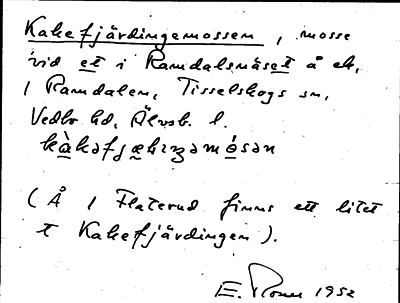 Kakefjärdingemossen, mosse
vid et i Ramdalsnäset å ek.
1 Ramdalen, Tisselskogs sn,
Vedbo hd, Älvsb. l.
kàkəfjæḥɪŋəmósən
(Å 1 Flaterud finns ett litet
t Kakefjärdingen).
E. 1952